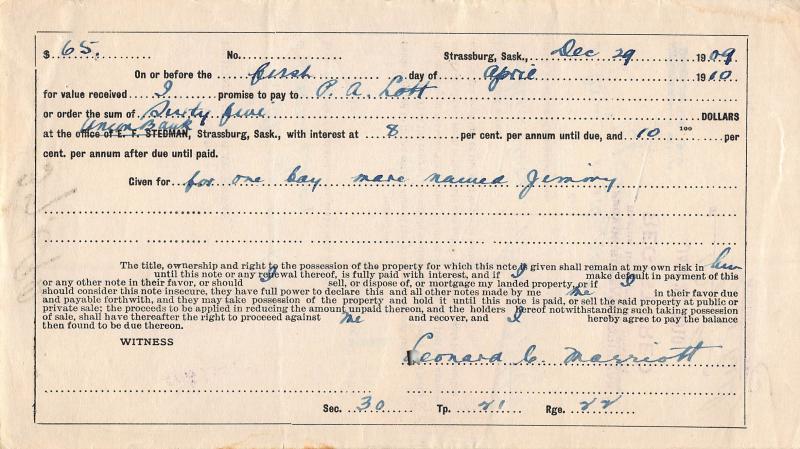 $ 65. No. Strassburg, Sask., Dec 29 1909
On or before the first day of April 1910
for value received I promise to pay to P. A. Lott
or order the sum of Sixty five DOLLARS
Union Bank
at the office of E. F. STEDMAN, Strassburg, Sask., with interest at 8 per cent. per annum until due, and 10 100 per
cent. per annum after due until paid.
Given for for one bay mare named Jemmy
The title, ownership and right to the possession of the property for which this note is given shall remain at my own risk in him
until this note or any renewal thereof, is fully paid with interest, and if I make default in payment of this
or any other note in their favor, or should I sell, or dispose of, or mortgage my landed property, or if I
should consider this note insecure, they have full power to declare this and all other notes made by me me in their favor due
and payable forthwith, and they may take possession of the property and hold it until this note is paid, or sell the said property at public or
private sale; the proceeds to be applied in reducing the amount unpaid thereon, and the holders hereof notwithstanding such taking possession
of sale, shall have thereafter the right to proceeed against me and recover, and I hereby agree to pay the balance
then found to be due thereon.
WITNESS
Leonard C. Marriott
Sec. 30 Tp. 21 Rge. 22